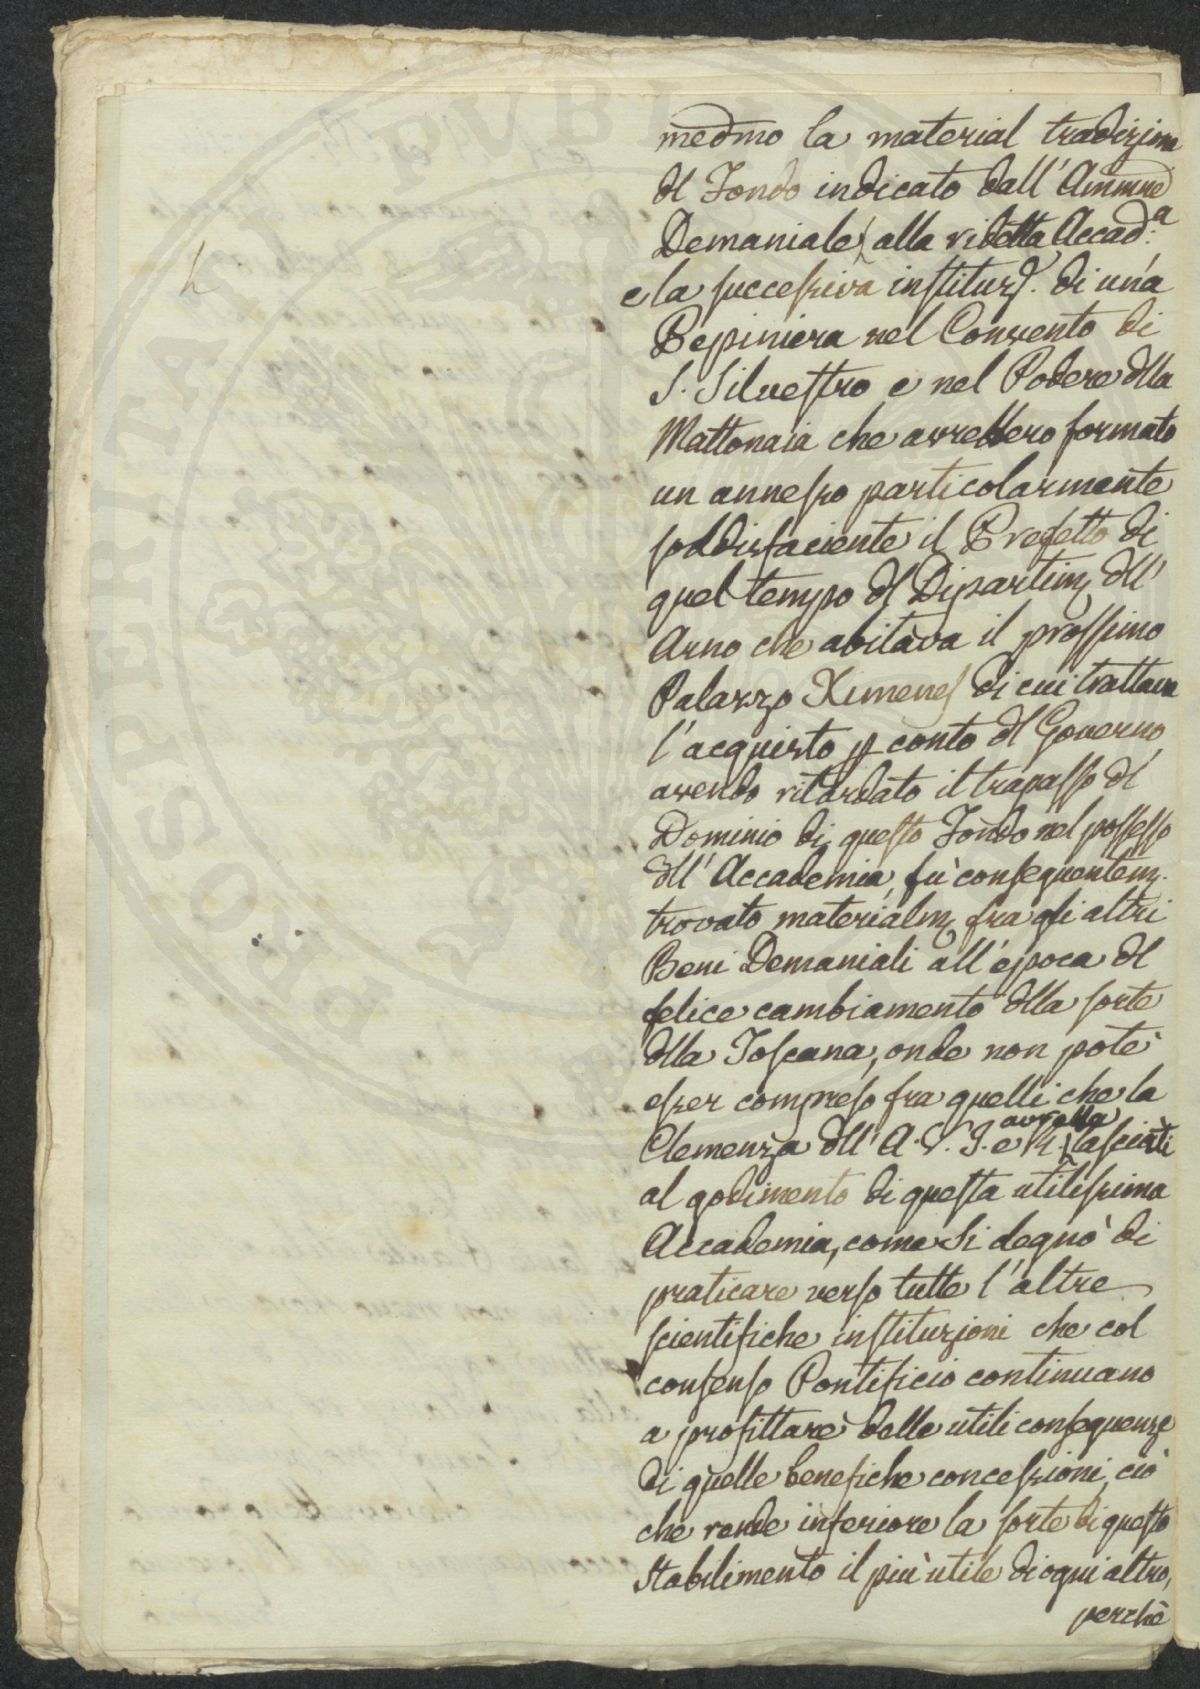 medmo la material tradizione
dl Fondo indicato dall'Ammne
Demaniale alla ridetta Accad.a
e la successiva instituz. di una
Pepiniera nel Convento di
S. Silvestro e nel Podere dlla
Mattonaia che avrebbero formato
un annesso particolarmente
soddisfaciente il Prefetto di
quel tempo dl Dipartim dll'
Arno che abitava il prossimo
Palazzo Ximenes di cui trattava
l'acquisto p conto dl Governo
avendo ritardato il trapasso di
Dominio di questo Fondo nel possesso
dll'Accademia, fù conseguentem.
trovato materialm fra gli altri
Beni Demaniali all'epoca dl
felice cambiamento dlla sorte
dlla Toscana, onde non potè
esser compreso fra quelli che la
Clemenza dll'A. V. I. e R. avea lasciati
al godimento di questa utilissima
Accademia, come si degnò di
praticare verso tutte l'altre
scientifiche instituzioni che col
consenso Pontificio continuano
a profittare delle utili conseguenze
di quelle benefiche concessioni, ciò
che rende inferiore la sorte di questo
Stabilimento il più utile di ogni altro,
perchè